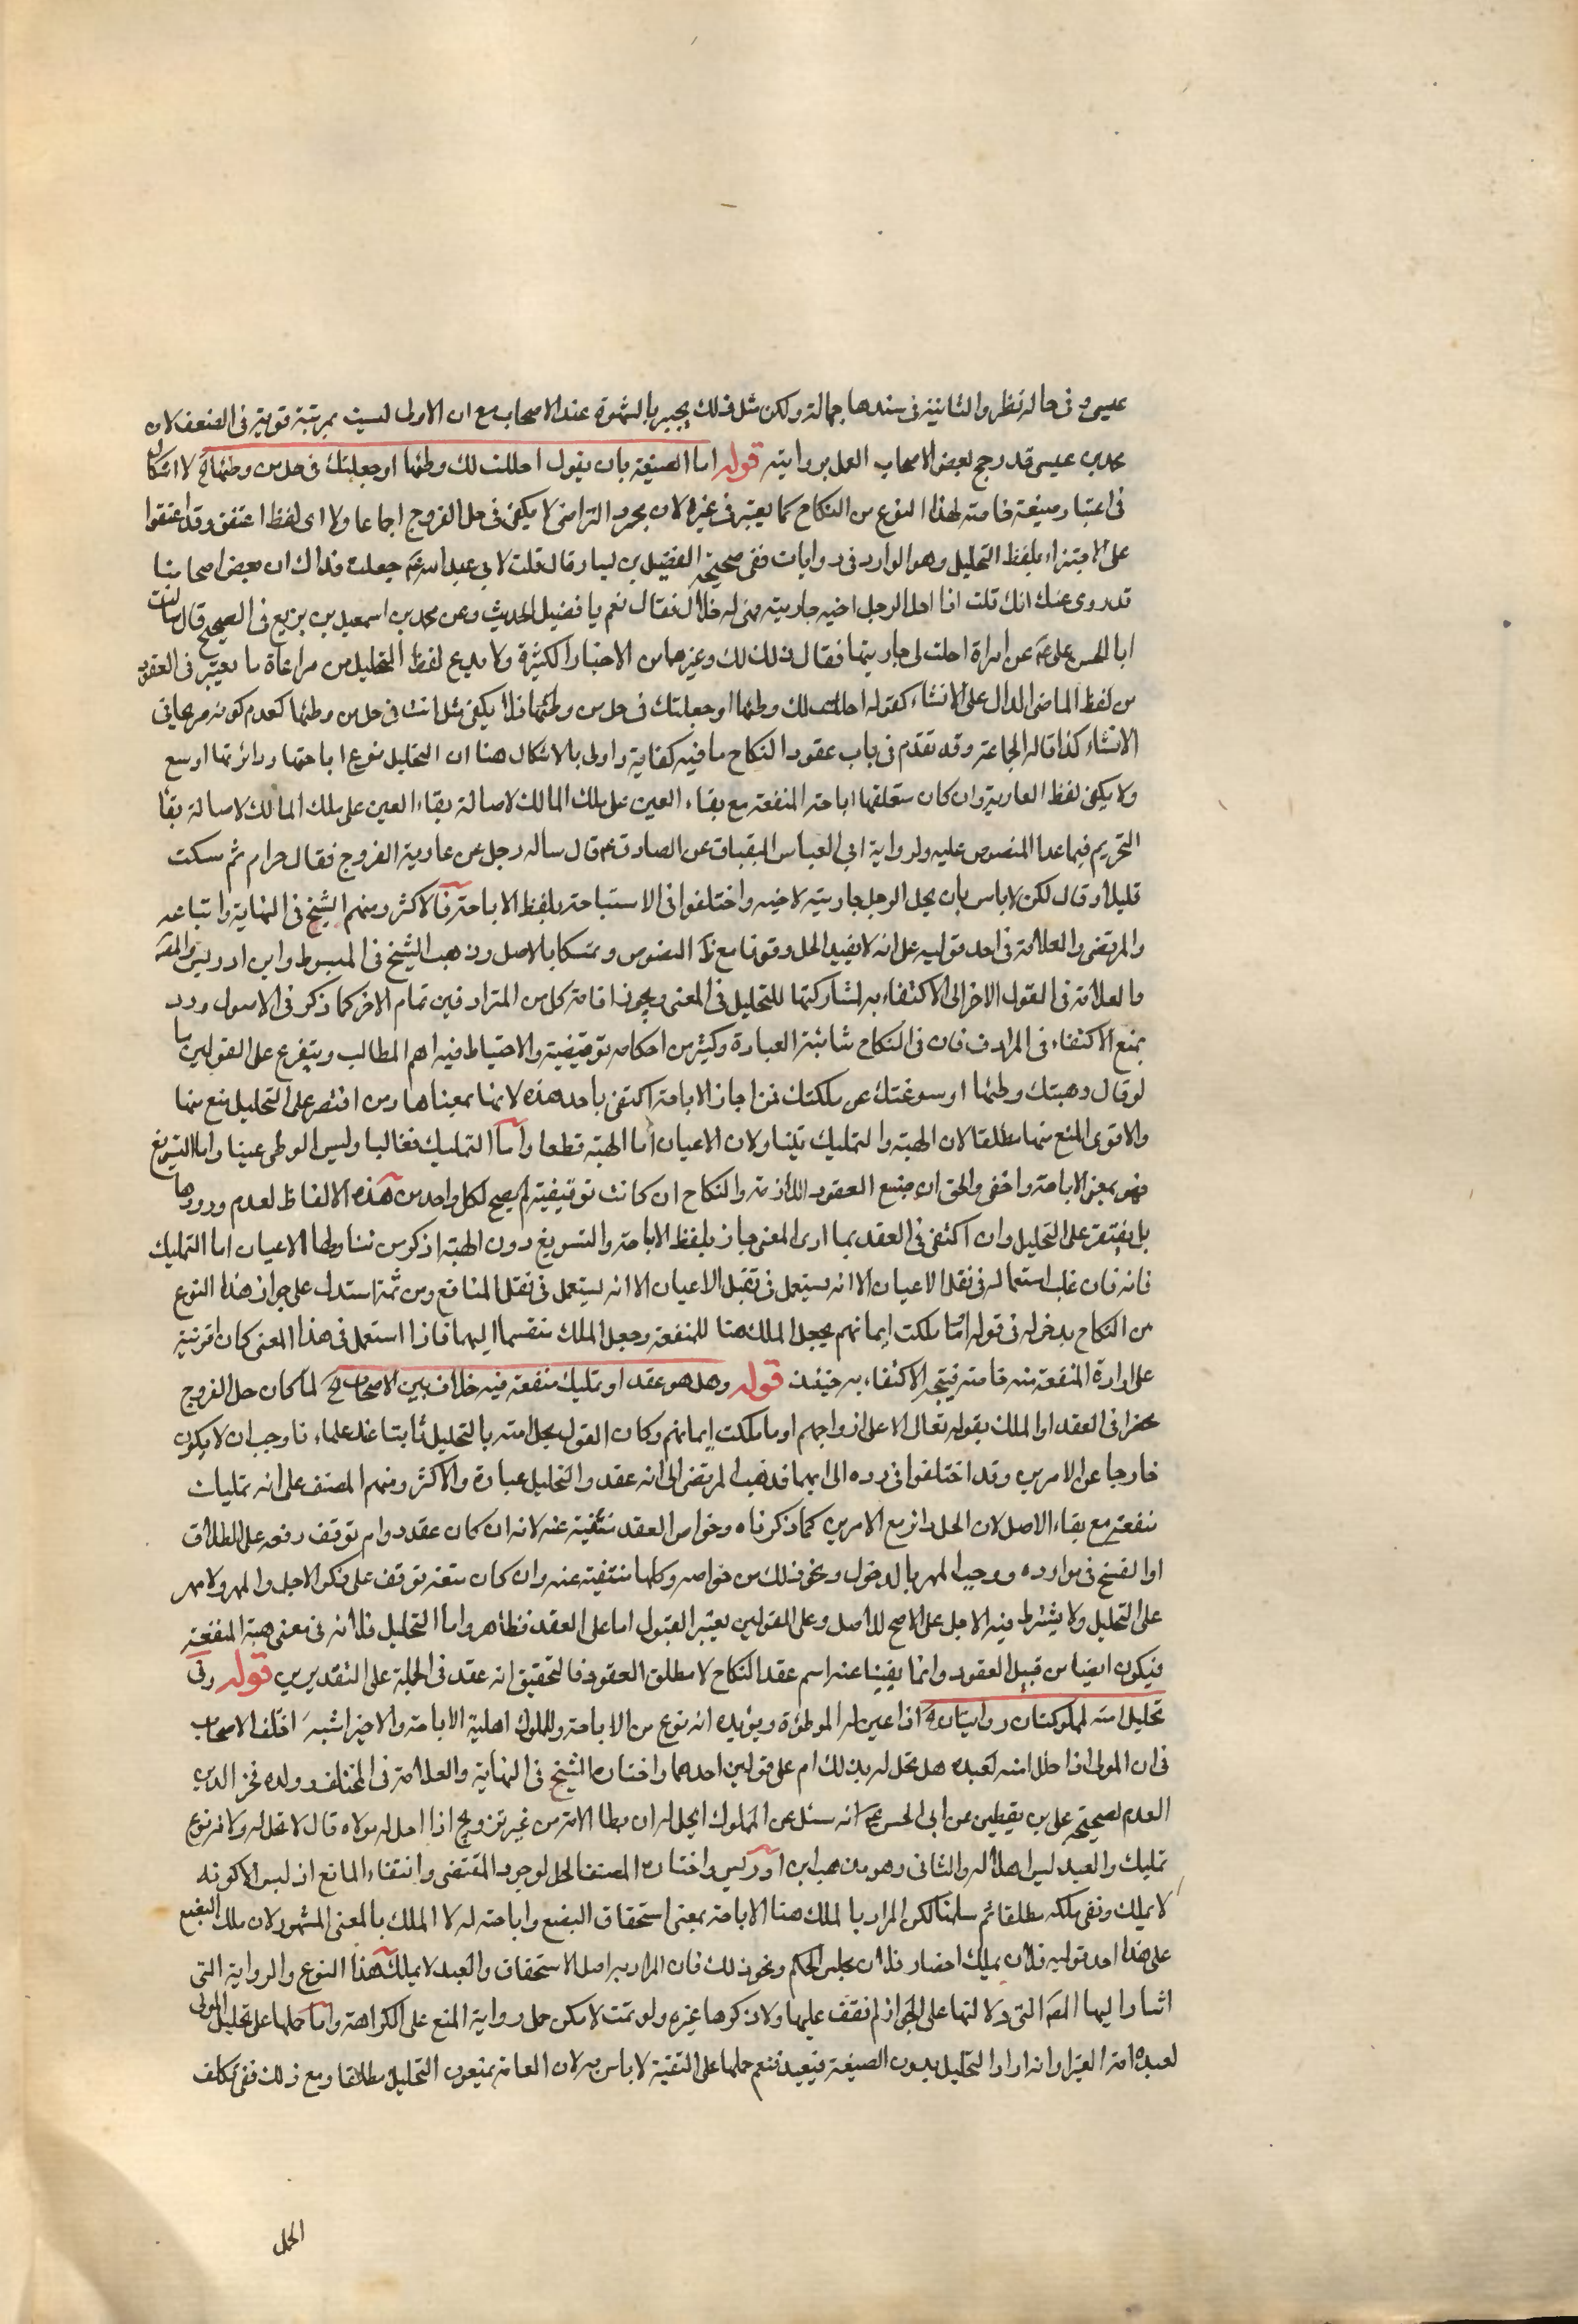 عيسى و فى حاله نظر والثانية فى سندها جهالة ولكن مثل ذلك يجبر بالشهرة عند الاصحاب مع ان الاولى ليست بمرتبة قوية فى الضعف لان
محمد بن عيسى قد رجح بعض الاصحاب العمل بروايته قوله اما الصيغة بان يقول احللت لك وطئها او جعلتك فى حل من وطئها الخ لا اشكال
فى اعتبار صيغة خاصة لهذا النوع من النكاح كما يعتبر فى غيره لان مجرد التراضى لا يكفى فى حل الفروج اجماعا ولا اى لفظ اتفق وقد اتفقوا
على الاجتزاء بلفظ التحليل وهو الوارد فى روايات ففى صحيحة الفضيل بن يسار قال قلت لابى عبد الله ع جعلت فداك ان بعض اصحابنا
قد روى عنك انك قلت اذا احل الرجل اخيه جاريته فهى له حلال فقال نعم يا فضيل الحديث وعن محمد بن اسمعيل بن بزيع فى الصحيح قال سالت
ابا الحسن ع عن امراة احلت لى جاريتها فقال ذلك لك وغيرهما من الاخبار الكثيرة ولا بد مع لفظ التحليل من مراعاة ما يعتبر فى العقود
من لفظ الماضى الدال على الانشاء كقوله احللت لك وطئها او جعلتك فى حل من وطئها فلا يكفى مثل انت فى حل من وطئها لعدم كونه صريحا فى
الانشاء كذا قاله الجماعة وقد تقدم فى باب عقود النكاح ما فيه كفاية واولى بالاشكال هنا ان التحليل نوع اباحتها ودائرتها اوسع
ولا يكفى لفظ العارية وان كان متعلقها اباحة المنفعة مع بقاء العين على ملك المالك لاصالة بقاء العين على ملك المالك لاصالة بقا
التحريم فيما عدا المنصوص عليه ولرواية ابى العباس البقباق عن الصادق ع قال ساله رجل عن عارية الفروج فقال حرام ثم سكت
قليلا وقال لكن لا باس بان يحل الرجل جاريته لاخيه واختلفوا فى الاستباحة بلفظ الاباحة فالاكثر ومنهم الشيخ فى النهاية واتباعه
والمرتضى والعلامة فى احد قوليه على انه لا يفيد الحل وقوفا مع النصوص وتمسكا بالاصل وذهب الشيخ فى المبسوط وابن ادريس والمص
والعلامة فى القول الاخر الى الاكتفاء به لمشاركتها للتحليل فى المعنى ويجوز اقامة كل من المترادفين مقام الاخر كما ذكر فى الاصول ورد
بمنع الاكتفاء فى المرادف فان فى النكاح شائبة العبادة وكثير من احكامه توقيفية والاحتياط فيه اهم المطالب ويتفرع على القولين ما
لو قال وهبتك وطئها او سوغتك عن ملكتك فمن اجاز الاباحة اكتفى باحد هذه لانها بمعناها ومن اقتصر على التحليل منع منها
والاقوى المنع منها مطلقا لان الهبة والتمليك يتناولان الاعيان اما الهبة قطعا واما التمليك فغالبا وليس الوطى عينا واما التسويغ
فهو بمعنى الاباحة واخفى والحق ان صيغ العقود اللازمة والنكاح ان كانت توقيفية لم يصح لكل واحد من هذه الالفاظ لعدم ورودها
بل يفتقر على التحليل وان اكتفى فى العقد بما ادى المعنى جاز بلفظ الاباحة والتسويغ دون الهبة لما ذكر من تناولها الاعيان اما التمليك
فانه فان غلب استعماله فى نقل الاعيان الا انه يستعمل فى نقل الاعيان الا انه يستعمل فى نقل المنافع ومن ثمة استدل على جواز هذا النوع
من النكاح بدخوله فى قوله او ما ملكت ايمانهم بجعل الملك هنا للمنفعة وجعل الملك منقسما اليهما فاذا استعمل فى هذا المعنى كان قرينة
على ارادة المنفعة منه خاصة فيتجه الاكتفاء به حينئذ قوله وهل هو عقد او تمليك منفعة فيه خلاف بين الاصحاب الخ لما كان حل الفروج
منحصرا فى العقد او الملك بقوله تعالى الا على ازواجهم او ما ملكت ايمانهم وكان القول بحل امته بالتحليل ثابتا عند علماءنا وجب ان لا يكون
خارجا عن الامرين وقد اختلفوا فى رده الى ايهما فذهب المرتضى الى انه عقد والتحليل عبارة والاكثر ومنهم المصنف على انه تمليك
منفعة مع بقاء الاصل لان الحل دائر مع الامرين كما ذكرناه وخواص العقد منتفية عنه لانه ان كان عقد دوام توقف رفعه على الطلاق
او الفسخ فى موارده ووجب المهر بالدخول ونحو ذلك من خواصه وكلها منتفية عنه وان كان متعة توقف على ذكر الاجل والمهر ولا مهر
على التحليل ولا يشترط فيه الاجل على الاصح للاصل وعلى القولين يعتبر القبول اما على العقد فظاهر واما التحليل فلانه فى معنى هبة المنفعة
فيكون ايضا من قبيل العقود وانما يفينا عنه اسم عقد النكاح لا مطلق العقود فالتحقيق انه عقد فى الجملة على التقديرين قوله وفى
تحليل امته لمملوكته روايتان الخ اذا عين له الموطؤة ويؤيده انه نوع من الاباحة وللمملوك اهلية الاباحة والاخير اشبه اختلف الاصحاب
فى ان المولى اذا حلل امته لعبده هل تحل له بذلك ام على قولين احدهما واختاره الشيخ فى النهاية والعلامة فى المختلف وولده فخر الدين
العدم لصحيحة على بن يقطين عن ابى الحسن ع انه سئل عن المملوك ايحل له ان يطا الامة من غير تزويج اذا احل له مولاه قال لا تحل له ولانه نوع
تمليك والعبد ليس اهلا له والثانى وهو مذهب ابن ادريس واختاره المصنف الحل لوجود المقتضى وانتفاء المانع اذ ليس الا كونه
لا يملك ونفى ملكه مطلقا ثم سلمنا لكن المراد بالملك هنا الاباحة بمعنى استحقاق البضع واباحته له لا الملك بالمعنى المشهور لان ملك البضع
على هذا احد قوليه فلان يملك احضار فلان مجلس الحكم ونحو ذلك فان المراد به اصل الاستحقاق والعبد لا يملك هذا النوع والرواية التى
اشار اليها المص التى دلالتها على الجواز لم نقف عليها ولا ذكرها غيره ولو تمت لامكن حمل رواية المنع على الكراهة واما حملها على تحليل المولى
لعبده امة الغير او انه اراد التحليل بدون الصيغة فبعيد فنعم حملها على التقية لا باس به لان العامة يمنعون التحليل مطلقا ومع ذلك ففى تكلف
الحمل